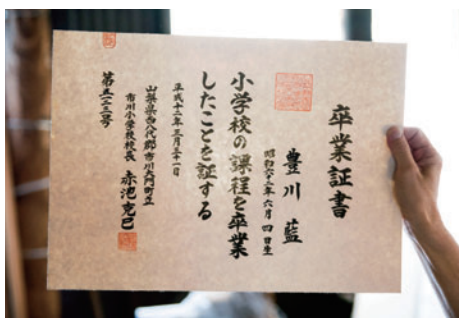 卒業証書
豊川 藍
昭和六十二年六月四日生
小学校の課程を卒業
したことを証する
平成十二年三月三十一日
山梨県西八代郡市川大門町立
市川小学校校長 赤池克巳